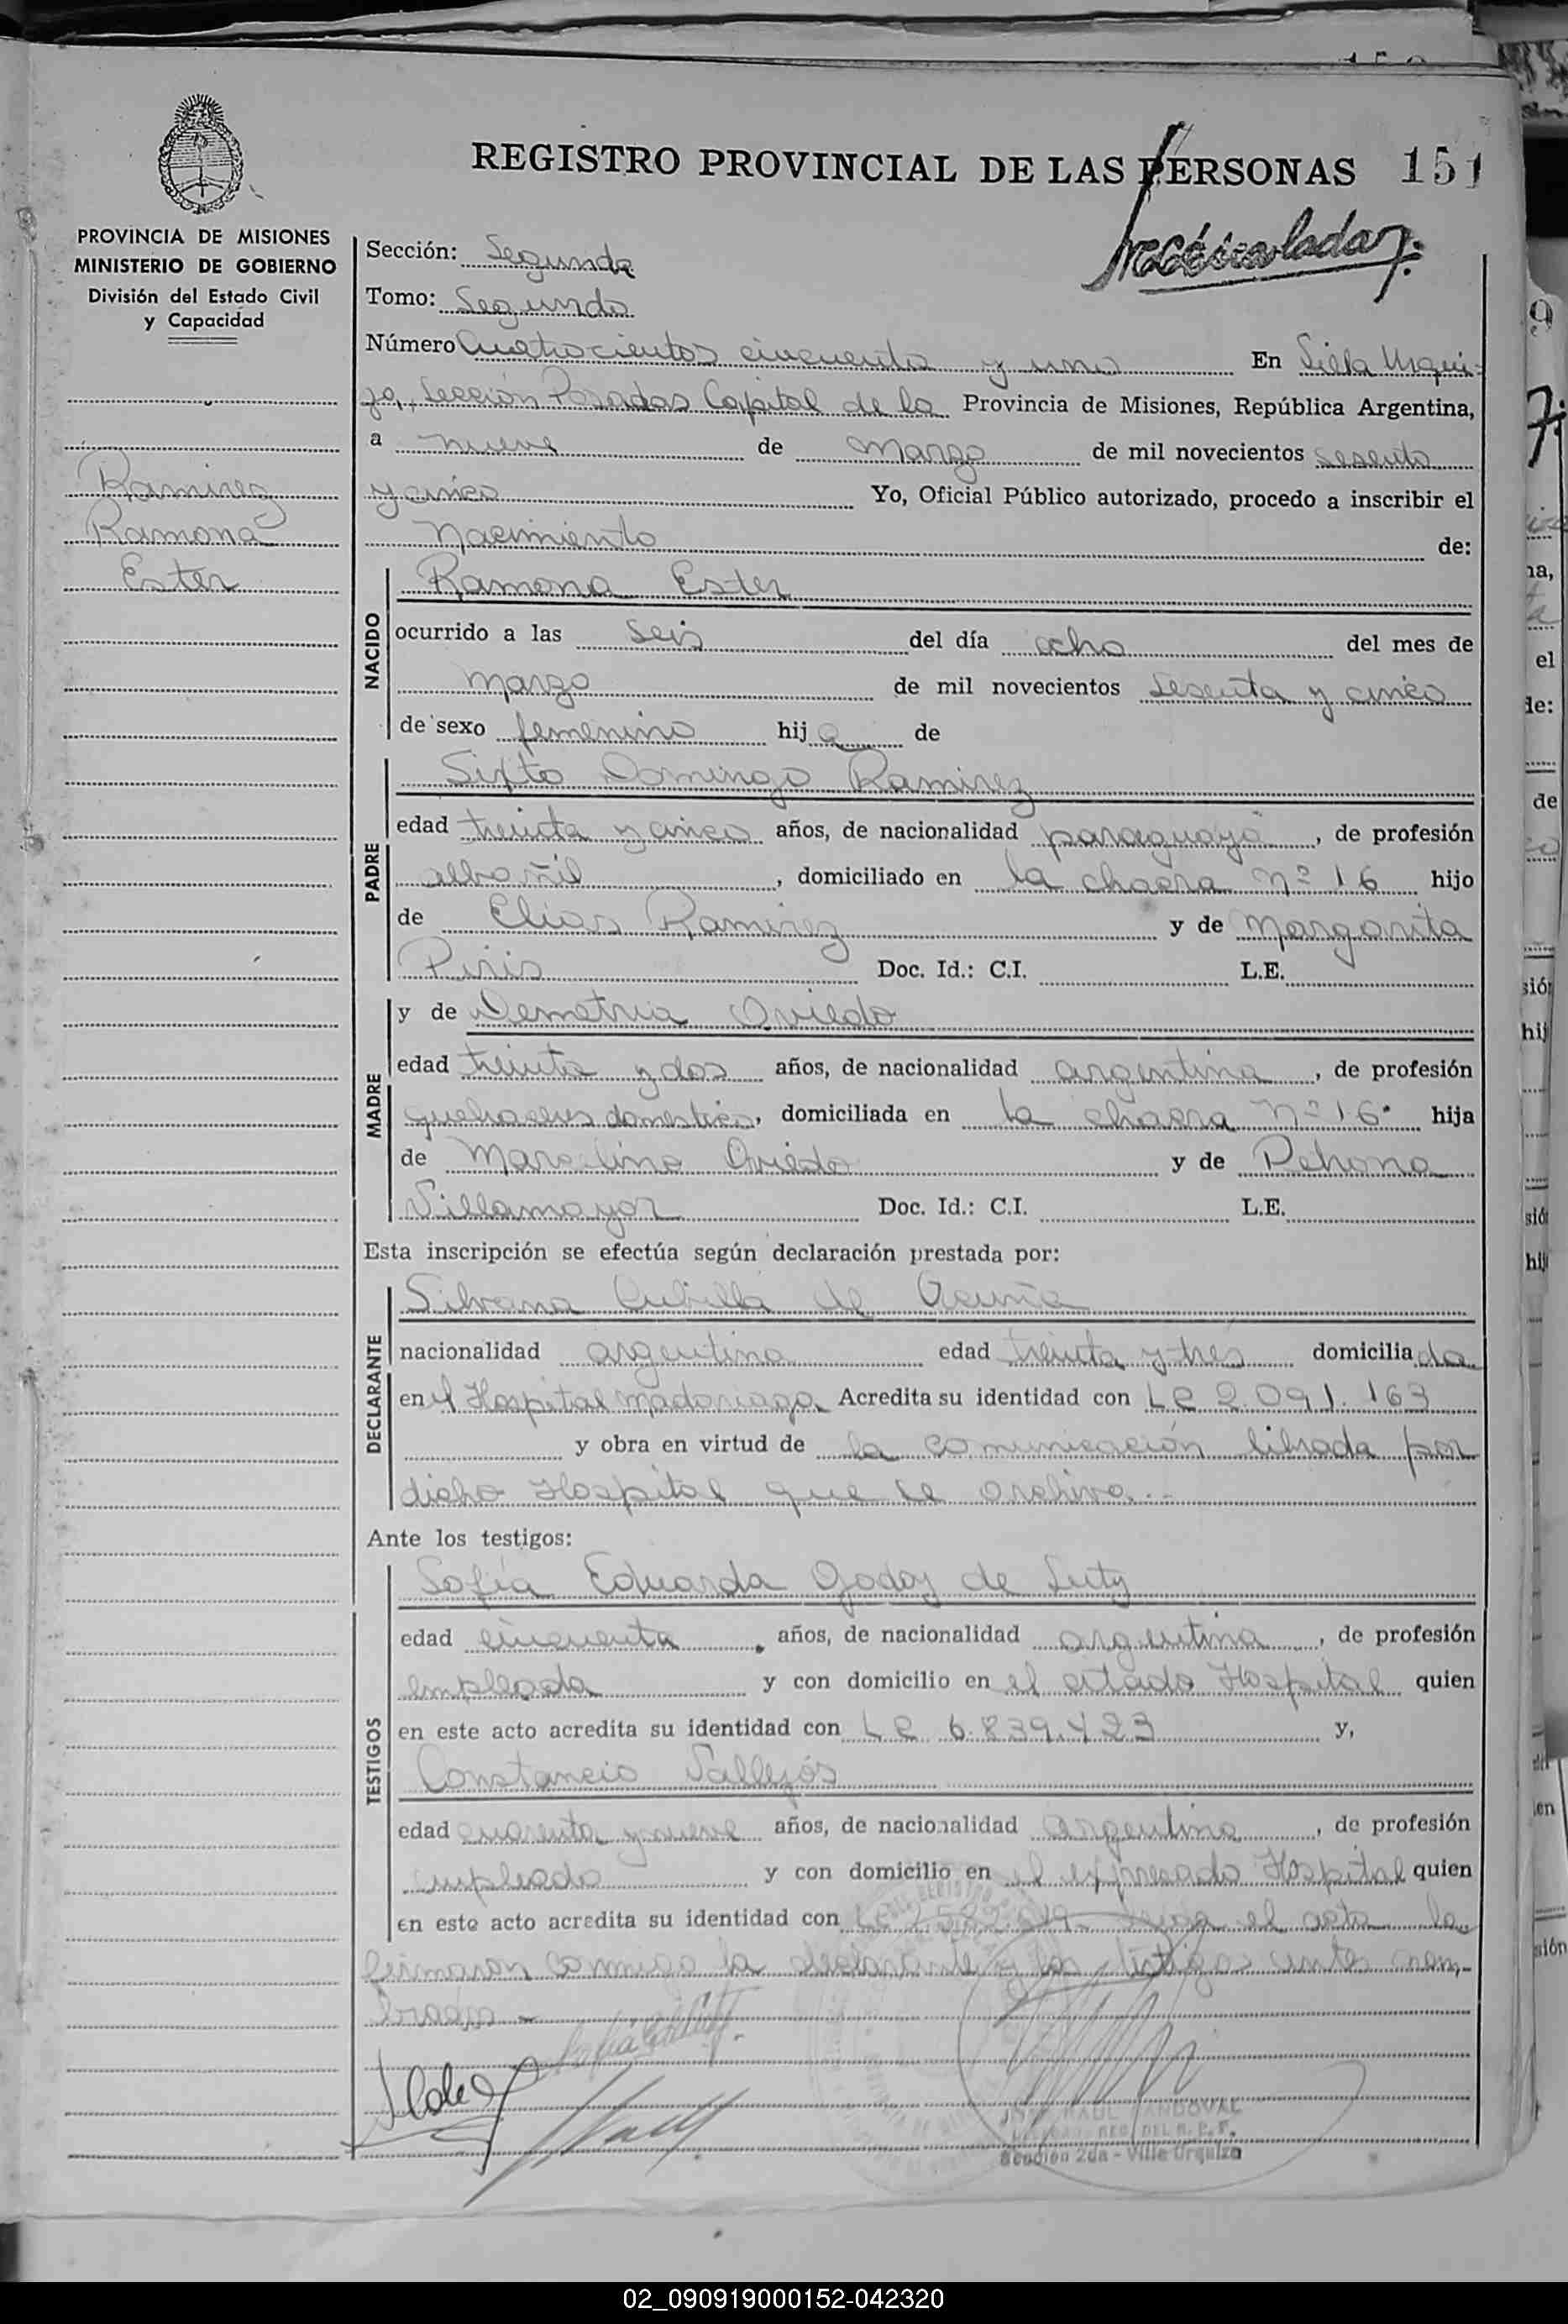 REGISTRO PROVINCIAL DE LAS PERSONAS 151
PROVINCIA DE MISIONES
MINISTERIO DE GOBIERNO
División del Estado Civil
y Capacidad
Ramirez
Ramona
Ester
Sección: Segunda
Tomo: Segundo
Número Cuatrocientos cincuenta y uno En Villa Urqui-
za, Sección Posadas Capital de la Provincia de Misiones, República Argentina,
a nueve de Marzo de mil novecientos sesenta
y cinco Yo, Oficial Público autorizado, procedo a inscribir el
Nacimiento de:
NACIDO
Ramona Ester
ocurrido a las seis del día ocho del mes de
marzo de mil novecientos sesenta y cinco
de sexo femenino hija de
PADRE
Sixto Domingo Ramirez
edad treinta y cinco años, de nacionalidad paraguaya, de profesión
albañil, domiciliado en la chacra Nº 16 hijo
de Elias Ramirez y de Margarita
Piris Doc. Id.: C.I. L.E.
MADRE
y de Demetria Oviedo
edad treinta y dos años, de nacionalidad argentina, de profesión
quehaceres domesticos, domiciliada en la chacra Nº 16 hija
de Marcelino Oviedo y de Petrona
Villamayor Doc. Id.: C.I. L.E.
Esta inscripción se efectúa según declaración prestada por:
DECLARANTE
Silvana Cubilla de Acuña
nacionalidad argentina edad treinta y tres domiciliada
en el Hospital Madariaga Acredita su identidad con LC 2.091.163
y obra en virtud de la comunicación librada por
dicho Hospital que se archiva.--
Ante los testigos:
TESTIGOS
Sofía Eduarda Godoy de
edad cincuenta años, de nacionalidad argentina, de profesión
empleada y con domicilio en el citado Hospital quien
en este acto acredita su identidad con LC 6.839.423 y,
Constancio Vallejos
edad cuarenta y nueve años, de nacionalidad argentina, de profesión
empleado y con domicilio en el expresado Hospital quien
en este acto acredita su identidad con el acta la
firmaron conmigo la declarante y los testigos antes nom-
brados -
RAUL SANDOVAL
Sección 2da - Villa Urquiza
02_090919000152-042320